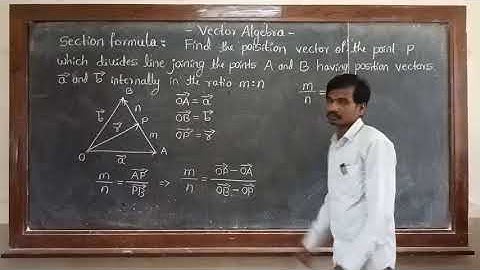 - Vector Algebra -
Section formula: Find the poisition vector of the point P
which divides line joining the points A and B having position vectors.
a⃗ and b⃗ internally in the ratio m:n
B
n
b⃗
P
r⃗
m
O
a⃗
A
OA⃗ = a⃗
OB⃗ = b⃗
OP⃗ = r⃗
m/n =
m/n = AP⃗/PB⃗ ⇒ m/n = (OP⃗ - OA⃗)/(OB⃗ - OP⃗)